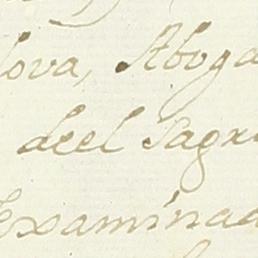 lova, Aboga
deel Sagr
Examinad